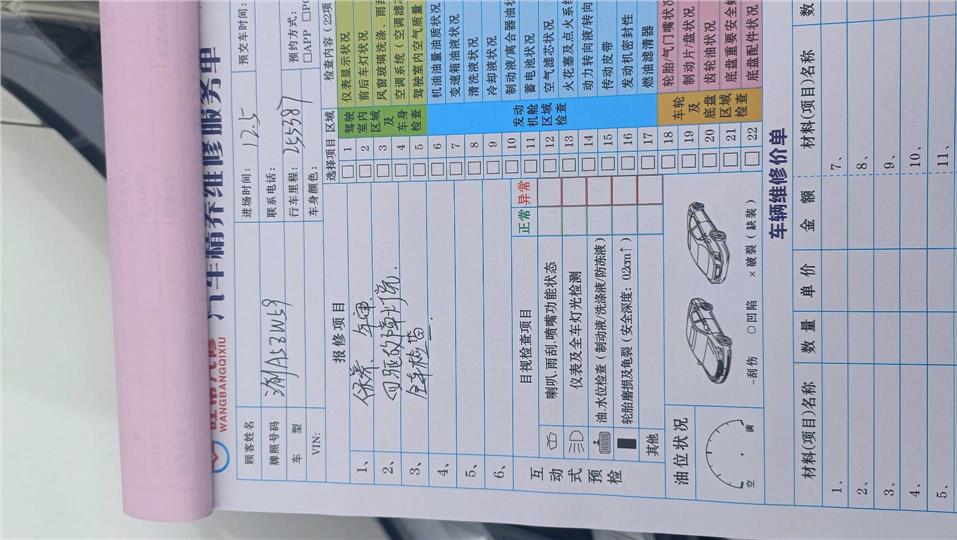 汽车精养维修服务单
WANGBANGQIXIU
顾客姓名 进场时间: 12.5 预交车时间:
牌照号码 联系电话: 预约方式:
车 型 行车里程: 255287 □APP
VIN: 车身颜色:
报修项目
1、保养、
2、四驱故障灯亮.
3、全车检查
4、
5、
6、
选择项目 区域 检查内容(22项
驾驶室内区域及车身检查
□ 1 仪表显示状况
□ 2 前后车灯状况
□ 3 风窗玻璃洗涤、雨刮
□ 4 空调系统(空调滤
□ 5 驾驶室内空气质量
发动机舱区域检查
□ 6 机油油量油质状况
□ 7 变速箱油液状况
□ 8 清洗液状况
□ 9 冷却液状况
□ 10 制动液/离合器油状
□ 11 蓄电池状况
□ 12 空气滤芯状况
□ 13 火花塞及点火系统
□ 14 动力转向液/转向
□ 15 传动皮带
□ 16 发动机密封性
□ 17 燃油滤清器
车轮及底盘区域检查
□ 18 轮胎/气门嘴状况
□ 19 制动片/盘状况
□ 20 齿轮油状况
□ 21 底盘重要安全螺
□ 22 底盘配件状况
互动式预检
目视检查项目 正常 异常
喇叭.雨刮.喷嘴功能状态
仪表及全车灯光检测
油.水位检查(制动液/洗涤液/防冻液)
轮胎磨损及龟裂(安全深度:0.2cm↑)
其他
油位状况
空 满
-刮伤 ○凹陷 ×破裂(缺装)
车辆维修价单
材料(项目)名称 数 量 单 价 金 额 材料(项目)名称 数
1、 7、
2、 8、
3、 9、
4、 10、
5、 11、